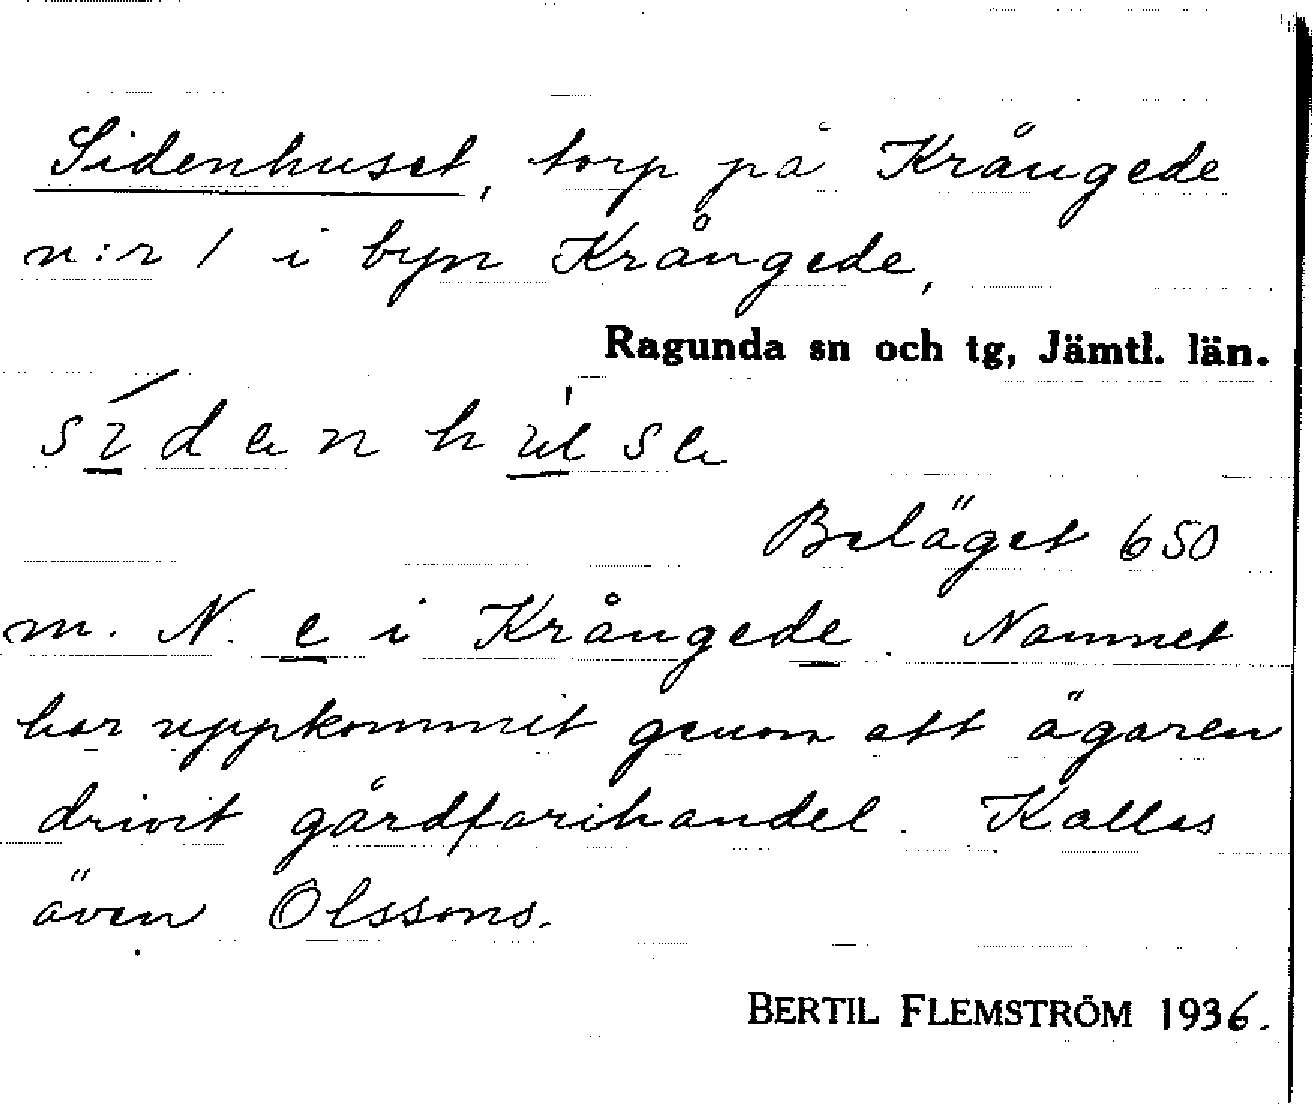 Sidenhuset, torp på Krångede
n:r 1 i byn Krångede,
Ragunda sn och tg, Jämtl. län.
Beläget 650
m. N. e i Krångede. Namnet
har uppkommit genom att ägaren
drivit gårdfarihandel. Kallas
även Olssons.
BERTIL FLEMSTRÖM 1936.